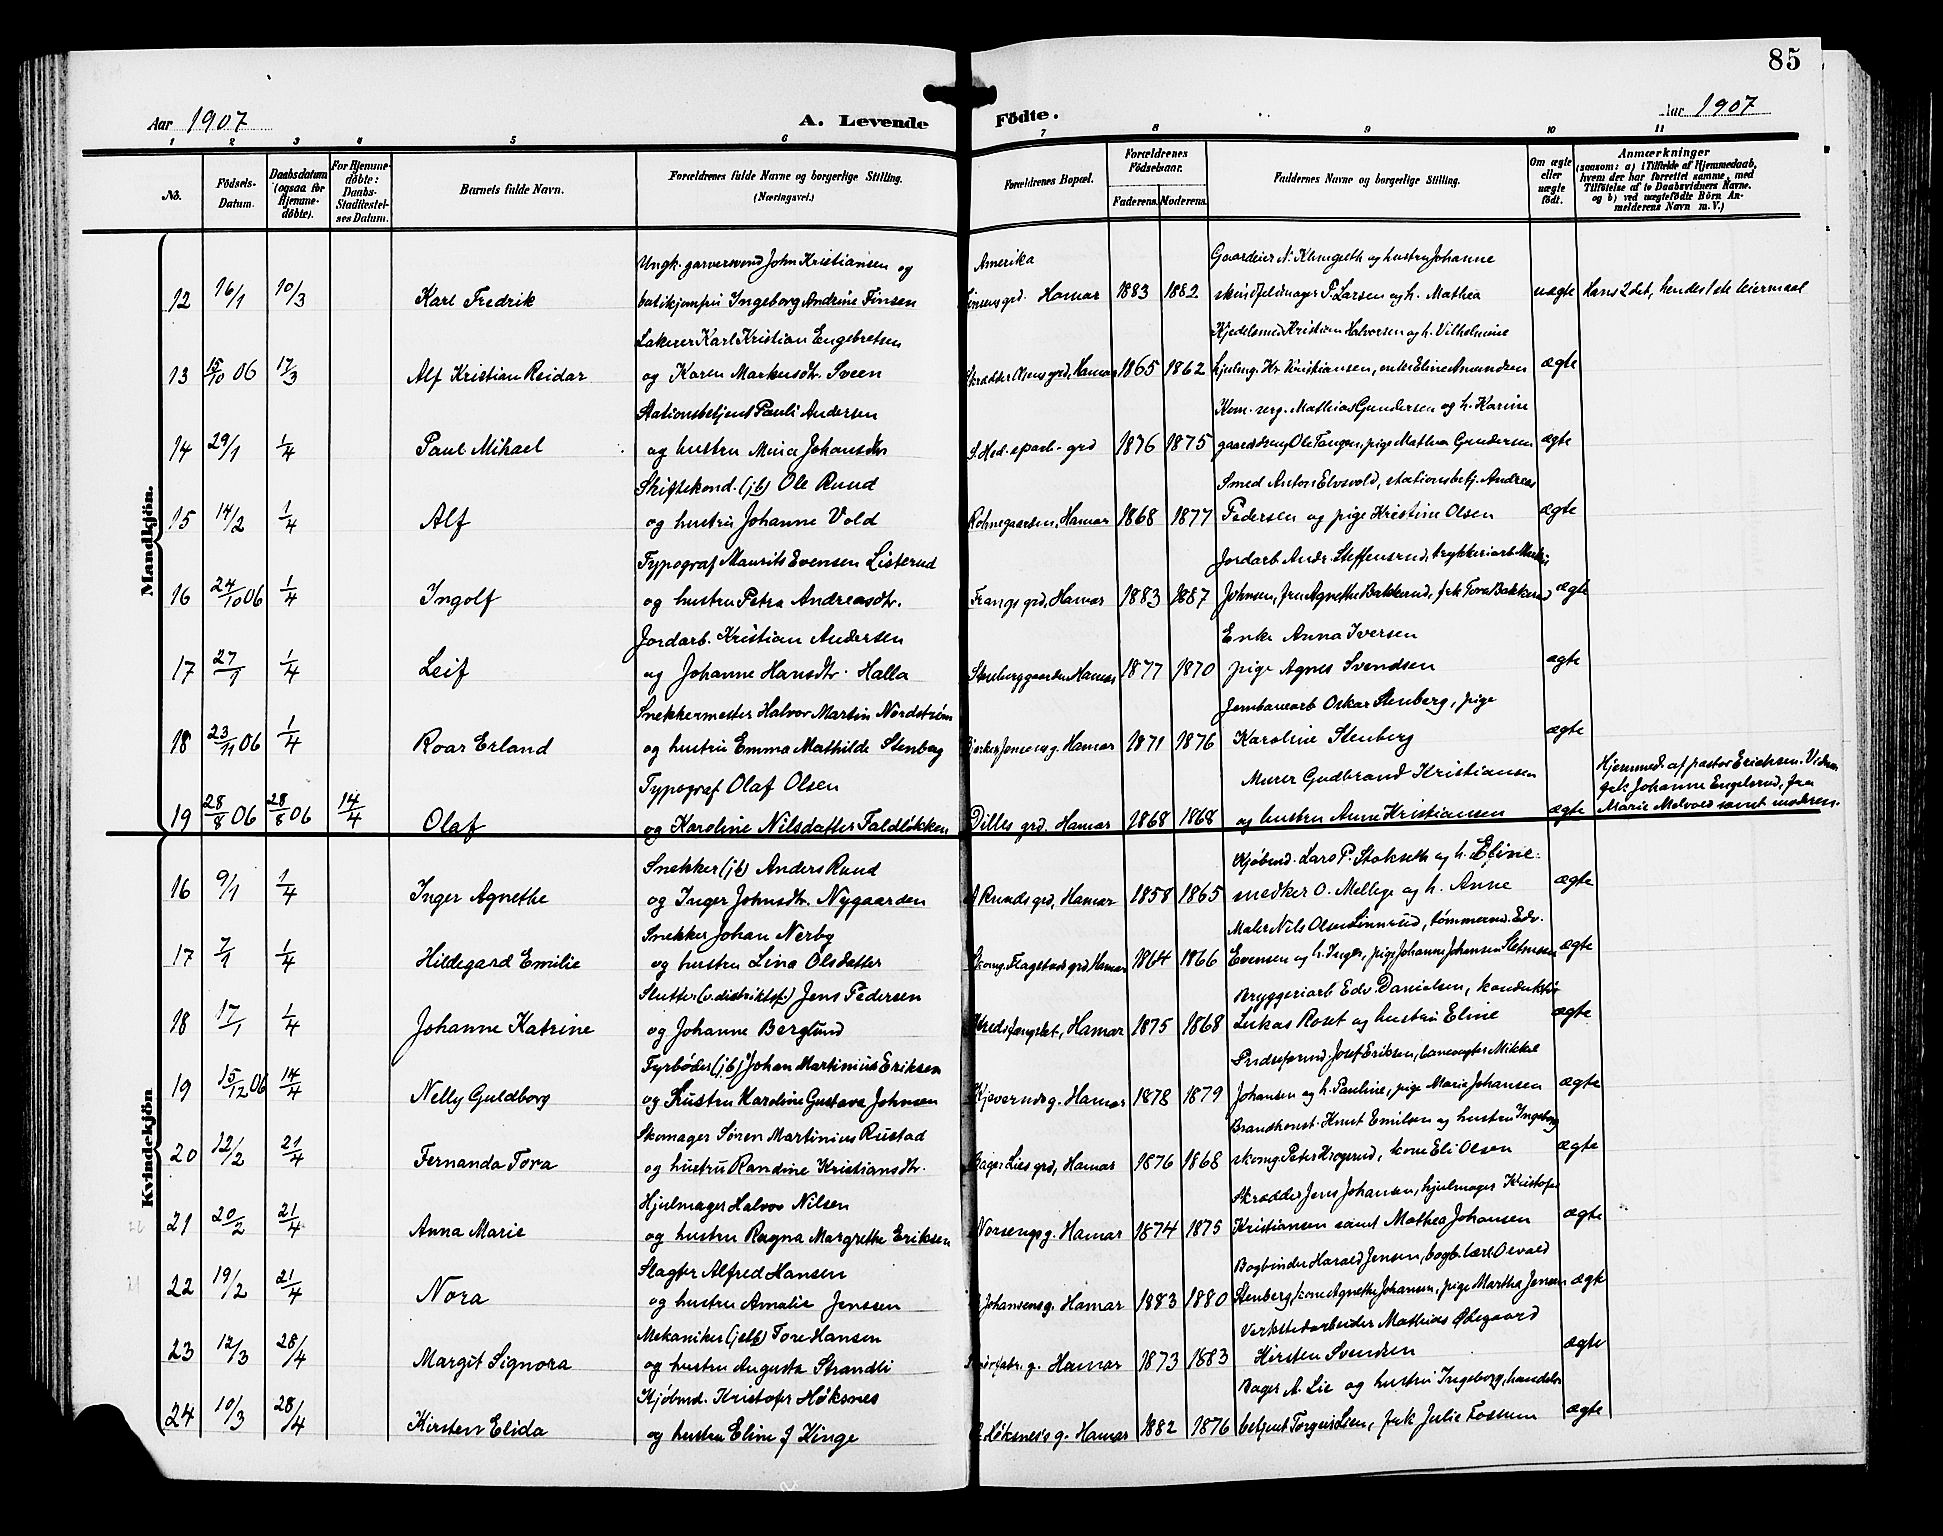 85
Aar 1907
A. Levende Födte.
Aar 1907
1 2 3 4 5 6 7 8 9 10 11
No.
Födsels-Datum.
Daabsdatum (ogsaa for Hjemme-døbte).
For Hjemme-døbte: Daabs-Stadfæstel-ses Datum.
Barnets fulde Navn.
Forældrenes fulde Navne og borgerlige Stilling. (Næringsvei.)
Forældrenes Bopæl.
Forældrenes Födselsaar.
Faderens. Moderens.
Faddernes Navne og borgerlige Stilling.
Om ægte eller uægte født.
Anmærkninger
(saasom: a) i Tilfælde af Hjemmedaab, hvem der har forrettet samme, med Tilføielse af to Daabsvidners Navne. og b) ved uægtefødte Børn Anmelderens Navn m. V.)
Mandkjön.
Ungk. garversvend John Kristiansen og Amerika Gaardeier N. Klungseth og hustru Johanne
12 16/1 10/3 Karl Fredrik butikjomfru Ingeborg Andrine Finsen Finsens grd. Hamar 1883 1882 skindfeldmager P. Larsen og h. Mathea uægte Hans 2det, hendes 1ste leiermaal
Lakerer Karl Kristian Engebretsen Kjedelsmed Kristian Halvorsen og h. Vilhelmine
13 15/10 06 17/3 Alf Kristian Reidar og Karen Markusdtr. Sveen Skrædder Olsens grd, Hamar 1865 1862 hjulmg. Kr. Kristiansen, enke Eline Amundsen ægte
Stationsbetjent Pauli Andersen Kom. serg. Mathias Gundersen og h. Karine
14 29/1 1/4 Paul Mihael og hustru Mina Johansdtr S. Hed. sparb. grd 1876 1875 gaardbrug Ole Tangen, pige Mathea Gundersen ægte
Skiftekond. (jb) Ole Ruud Smed Anton Elvsvold, stationsbetj. Andreas
15 14/2 1/4 Alf og hustru Johanne Vold Röhnegaarden, Hamar 1868 1877 Pedersen og pige Kristine Olsen ægte
Typograf Maurits Evensen Listerud Jordarb. Andr. Steffensrud, trykkeriarb.
16 24/10 06 1/4 Ingolf og hustru Petra Andreasdtr. Frangs grd, Hamar 1883 1887 Johnsen, fru Agnethe Bakkerud, frk Tora Bakkerud ægte
Jordarb. Kristian Andersen Enke Anna Iversen
17 27/1 1/4 Leif og Johanne Hansdtr. Halla Stenberggaarden Hamar 1877 1870 pige Agnes Svendsen ægte
Snekkermester Halvor Martin Nordstrøm Jernbanearb Oskar Stenberg, pige
18 23/11 06 1/4 Roar Erland og hustru Emma Mathilde Stenberg g. Hamar 1871 1876 Karoline Stenberg ægte
Typograf Olaf Olsen Murer Gudbrand Kristiansen Hjemmed. af pastor Erichsen. Vidner
frk Johanne Engelsrud, fru
19 28/8 06 28/8 06 14/4 Olaf og Karoline Nilsdatter Faldløkken Dilles grd. Hamar 1868 1868 og hustru Anne Kristiansen ægte Marie Melvold samt moderen.
Kvindekjön
Snekker (jb) Anders Ruud Kjøbmd. Lars P. Stokseth og h. Eline
16 9/1 1/4 Inger Agnethe og Inger Johnsdtr. Nygaarden A Ruuds grd, Hamar 1858 1865 snedker O. Mellege og h. Anne ægte
Snekker Johan Nerby Maler Nils Olsen Linnerud, tømmermd. Edv.
17 7/1 1/4 Hildegard Emilie og hustru Lina Olsdatter Skomg. Flagstads grd Hamar 1864 1866 Evensen og h. Inger, pige Johanne Johansen ægte
Slutter (v. distriktsf.) Jens Pedersen Bryggeriarb Edv. Danielsen, konduktör
18 17/1 1/4 Johanne Katrine og Johanne Berglund Kredsfængslet, Hamar 1875 1868 Lukas Roset og hustru Eline ægte
Fyrbøder (jb) Johan Martinius Eriksen Pudseformd. Josef Eriksen, banevogter Mikkel
19 15/12 06 14/4 Nelly Guldborg og Hustru Karoline Gustava Johnsen Kjeveruds g. Hamar 1878 1879 Johansen og h. Pauline, pige Marie Johansen ægte
Skomager Søren Martinius Rustad Brandkonst. Knut Emilsen og hustru Ingeborg
20 12/2 21/4 Fernanda Tora og hustru Randine Kristiansdtr. Bager Lies grd, Hamar 1876 1868 skomg Peter Krogsrud, kone Eli Olsen ægte
Hjulmager Halvor Nilsen Skrædder Jens Johansen, hjulmager Kristofer
21 20/2 21/4 Anna Marie og hustru Ragna Margrethe Eriksen Norsengs g. Hamar 1874 1875 Kristiansen samt Mathea Johansen ægte
Slagter Alfred Hansen Bogbinder Harald Jensen, bogb. lærl Osvald
22 19/2 21/4 Nora og hustru Amalie Jenssen Johansens g. Hamar 1883 1880 Stenberg, kone Agnethe Johansen, pige Martha Jensen ægte
Mekaniker (jslb) Tore Hansen Verkstedarbeider Mathias Ødegaard
23 12/3 28/4 Margit Signora og hustru Augusta Strandli g. Hamar 1873 1883 Kirsten Svendsen ægte
Kjøbmd. Kristofer Høksnes Bager A. Lie og hustru Ingeborg, handels
24 10/3 28/4 Kirsten Elida og hustru Eline J Kinge Høksnes's g. Hamar 1882 1876 betjent Torgeir Lien, frk Julie Fossum ægte